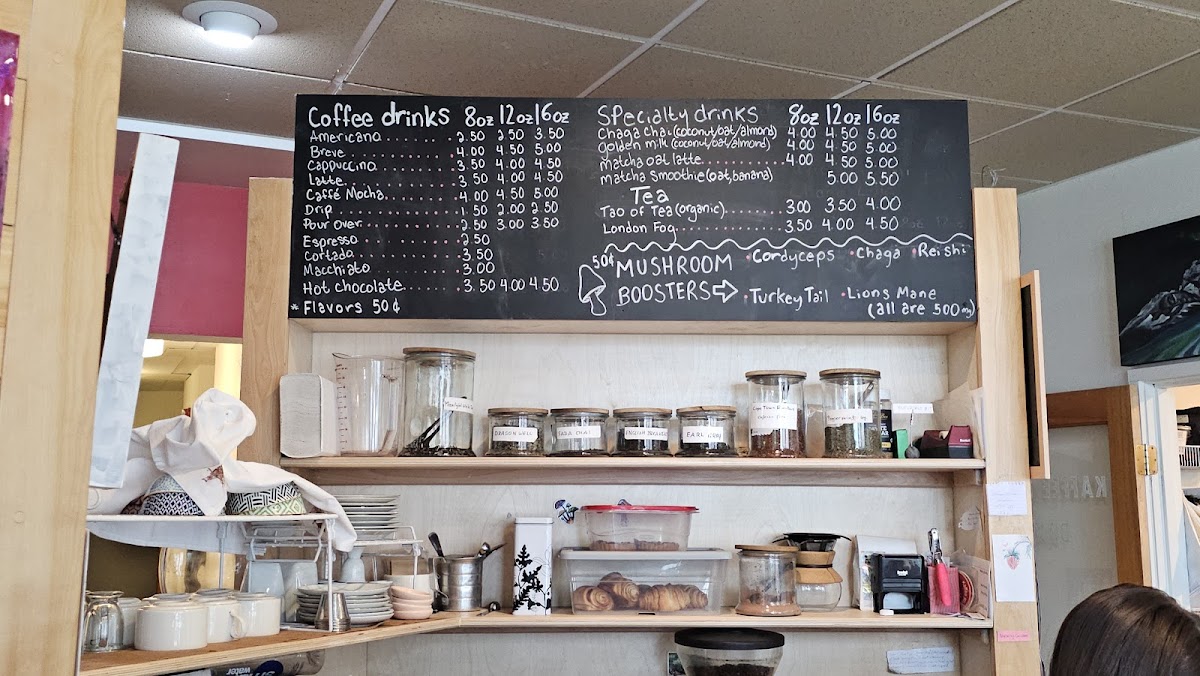 Coffee drinks 8oz 12oz 16oz
Americano 2.50 2.50 3.50
Breve 4.00 4.50 5.00
Cappuccino 3.50 4.00 4.50
Latte 3.50 4.00 4.50
Caffé Mocha 4.00 4.50 5.00
Drip 1.50 2.00 2.50
Pour Over 2.50 3.00 3.50
Espresso 2.50
Cortado 3.50
Macchiato 3.00
Hot chocolate 3.50 4.00 4.50
*Flavors 50¢
Specialty drinks 8oz 12oz 16oz
Chaga Chai (coconut/oat/almond) 4.00 4.50 5.00
golden milk (coconut/oat/almond) 4.00 4.50 5.00
matcha oat latte 4.00 4.50 5.00
matcha smoothie (oat, banana) 5.00 5.50
Tea
Tao of Tea (organic) 3.00 3.50 4.00
London Fog 3.50 4.00 4.50
50¢ MUSHROOM BOOSTERS
•Cordyceps •Chaga •Reishi
•Turkey Tail •Lions Mane
(all are 500mg)
DRAGON WELL
EARL GREY